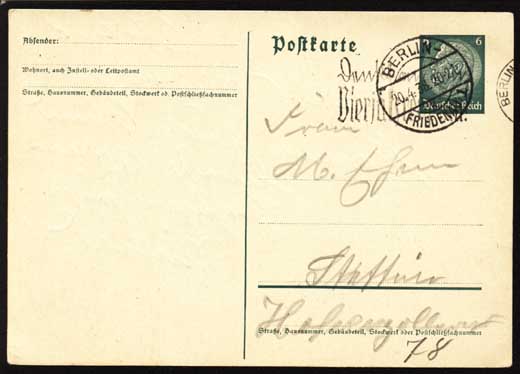 Absender:
Wohnort, auch Zustell- oder Leitpostamt
Straße, Hausnummer, Gebäudeteil, Stockwerk od. Postschließfachnummer
Postkarte
6
Deutsches Reich
BERLIN
20.4.
FRIEDEN
BERLIN
Frau
M.
Stettin
Hohenzollernstr.
Straße, Hausnummer, Gebäudeteil, Stockwerk oder Postschließfachnummer
78